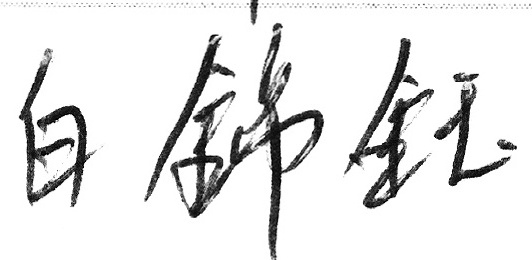 白錦鈺